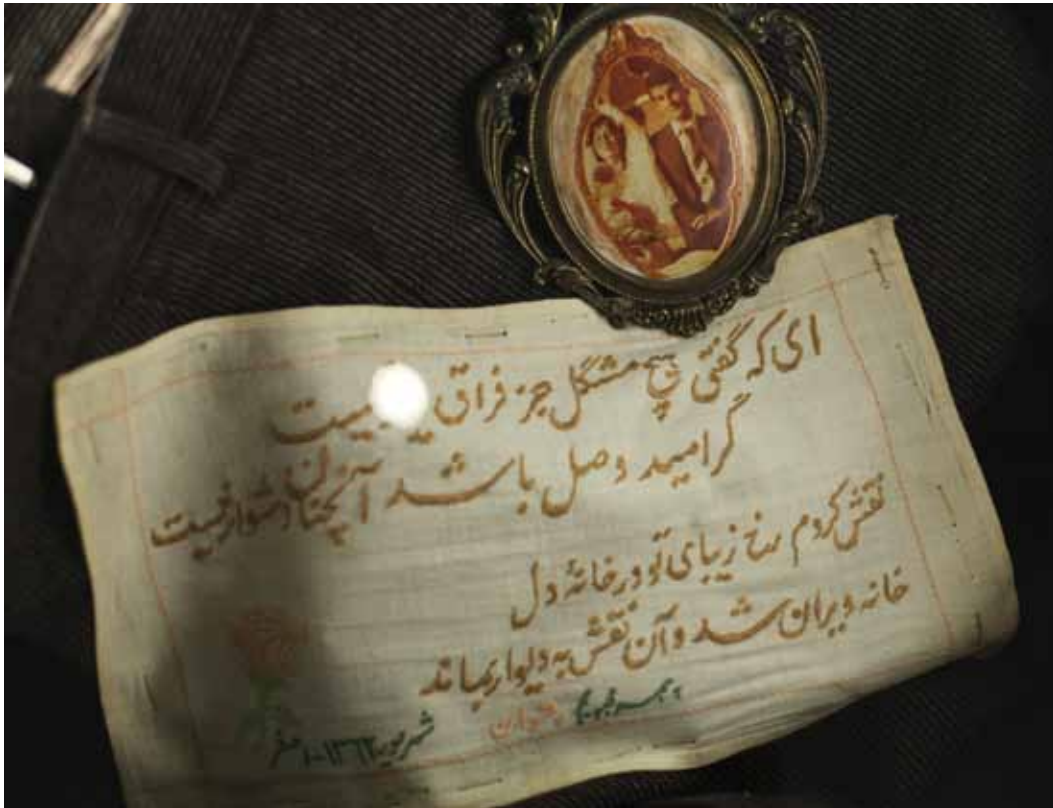 ای که گفتی هیچ مشگل جز فراق یار نیست
گر امید وصل باشد آنچنان دشوار نیست
نقش کردم رخ زیبای تو در خانهٔ دل
خانه ویران شد و آن نقش به دیوار بماند
شهریور ۱۳۶۲